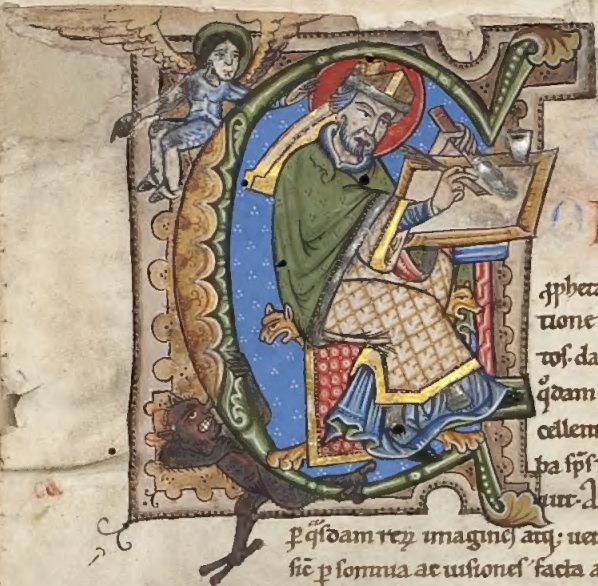 C
ꝓpheta
tione
tos. da
q̃dam
cellent
ba sp̃s
uit. A
ꝑ q̃sdam reꝝ imagines atq; uer
sic̄ ꝑ somnia ac uisiones facta a